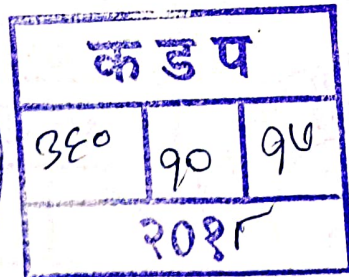 क ड प
३६० १० १५
२०१८